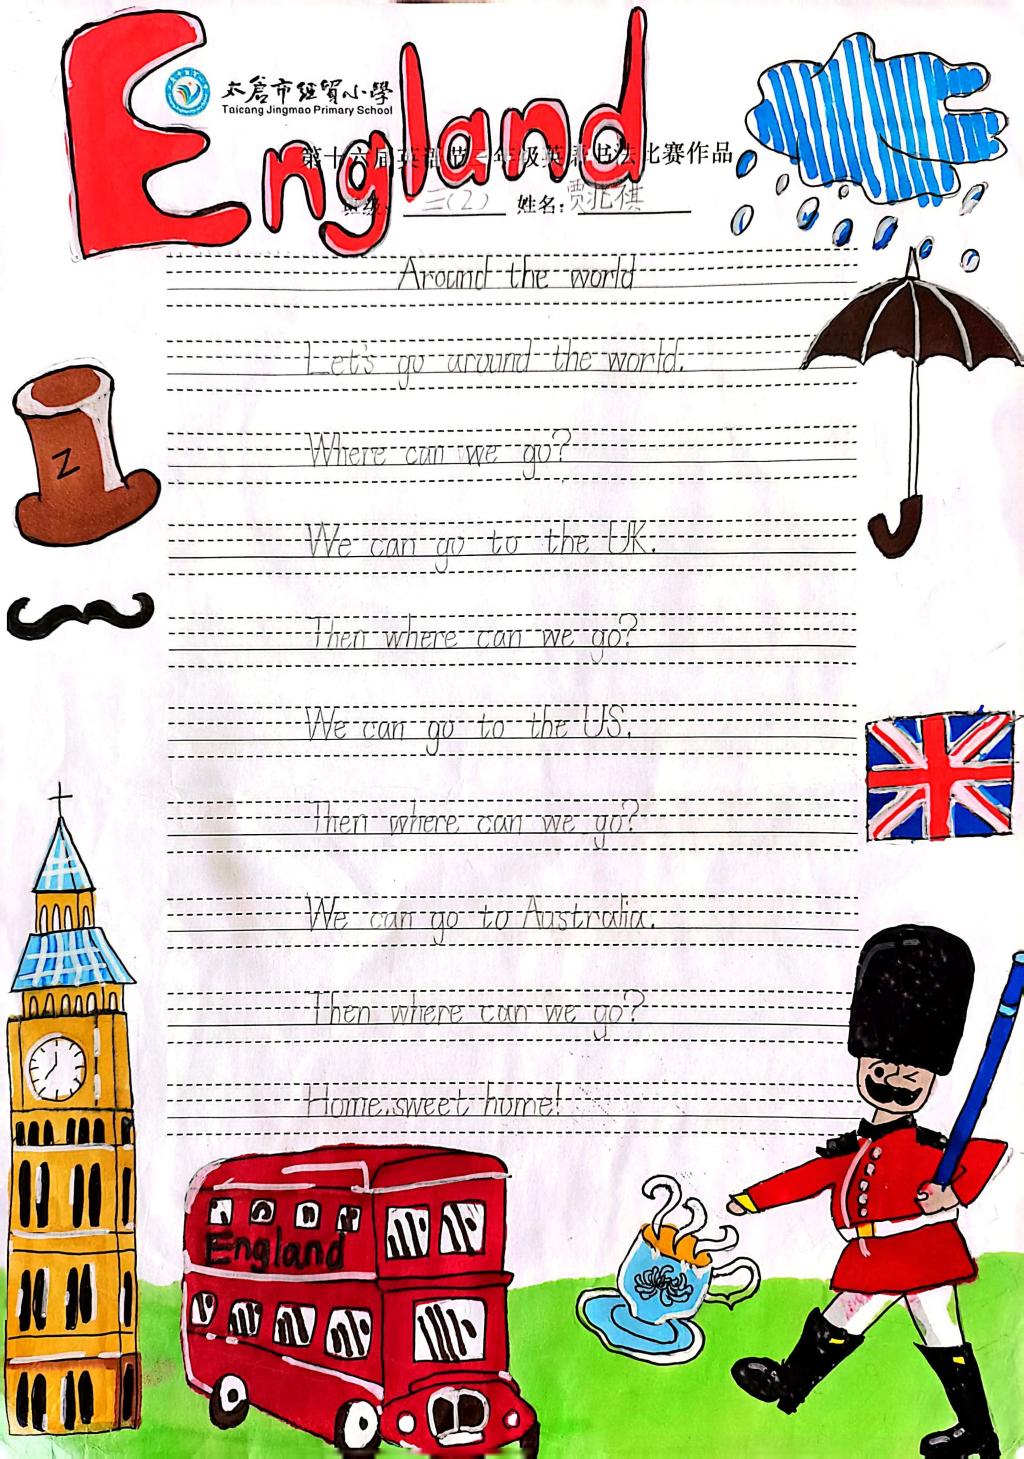 England
太倉市經貿小學
Taicang Jingmao Primary School
第十六届英语节三年级英语书法比赛作品
班级: 三(2) 姓名: 贾祺
Around the world
Let's go around the world.
Where can we go?
We can go to the UK.
Then where can we go?
We can go to the US.
Then where can we go?
We can go to Australia.
Then where can we go?
Home, sweet home!
Z
England